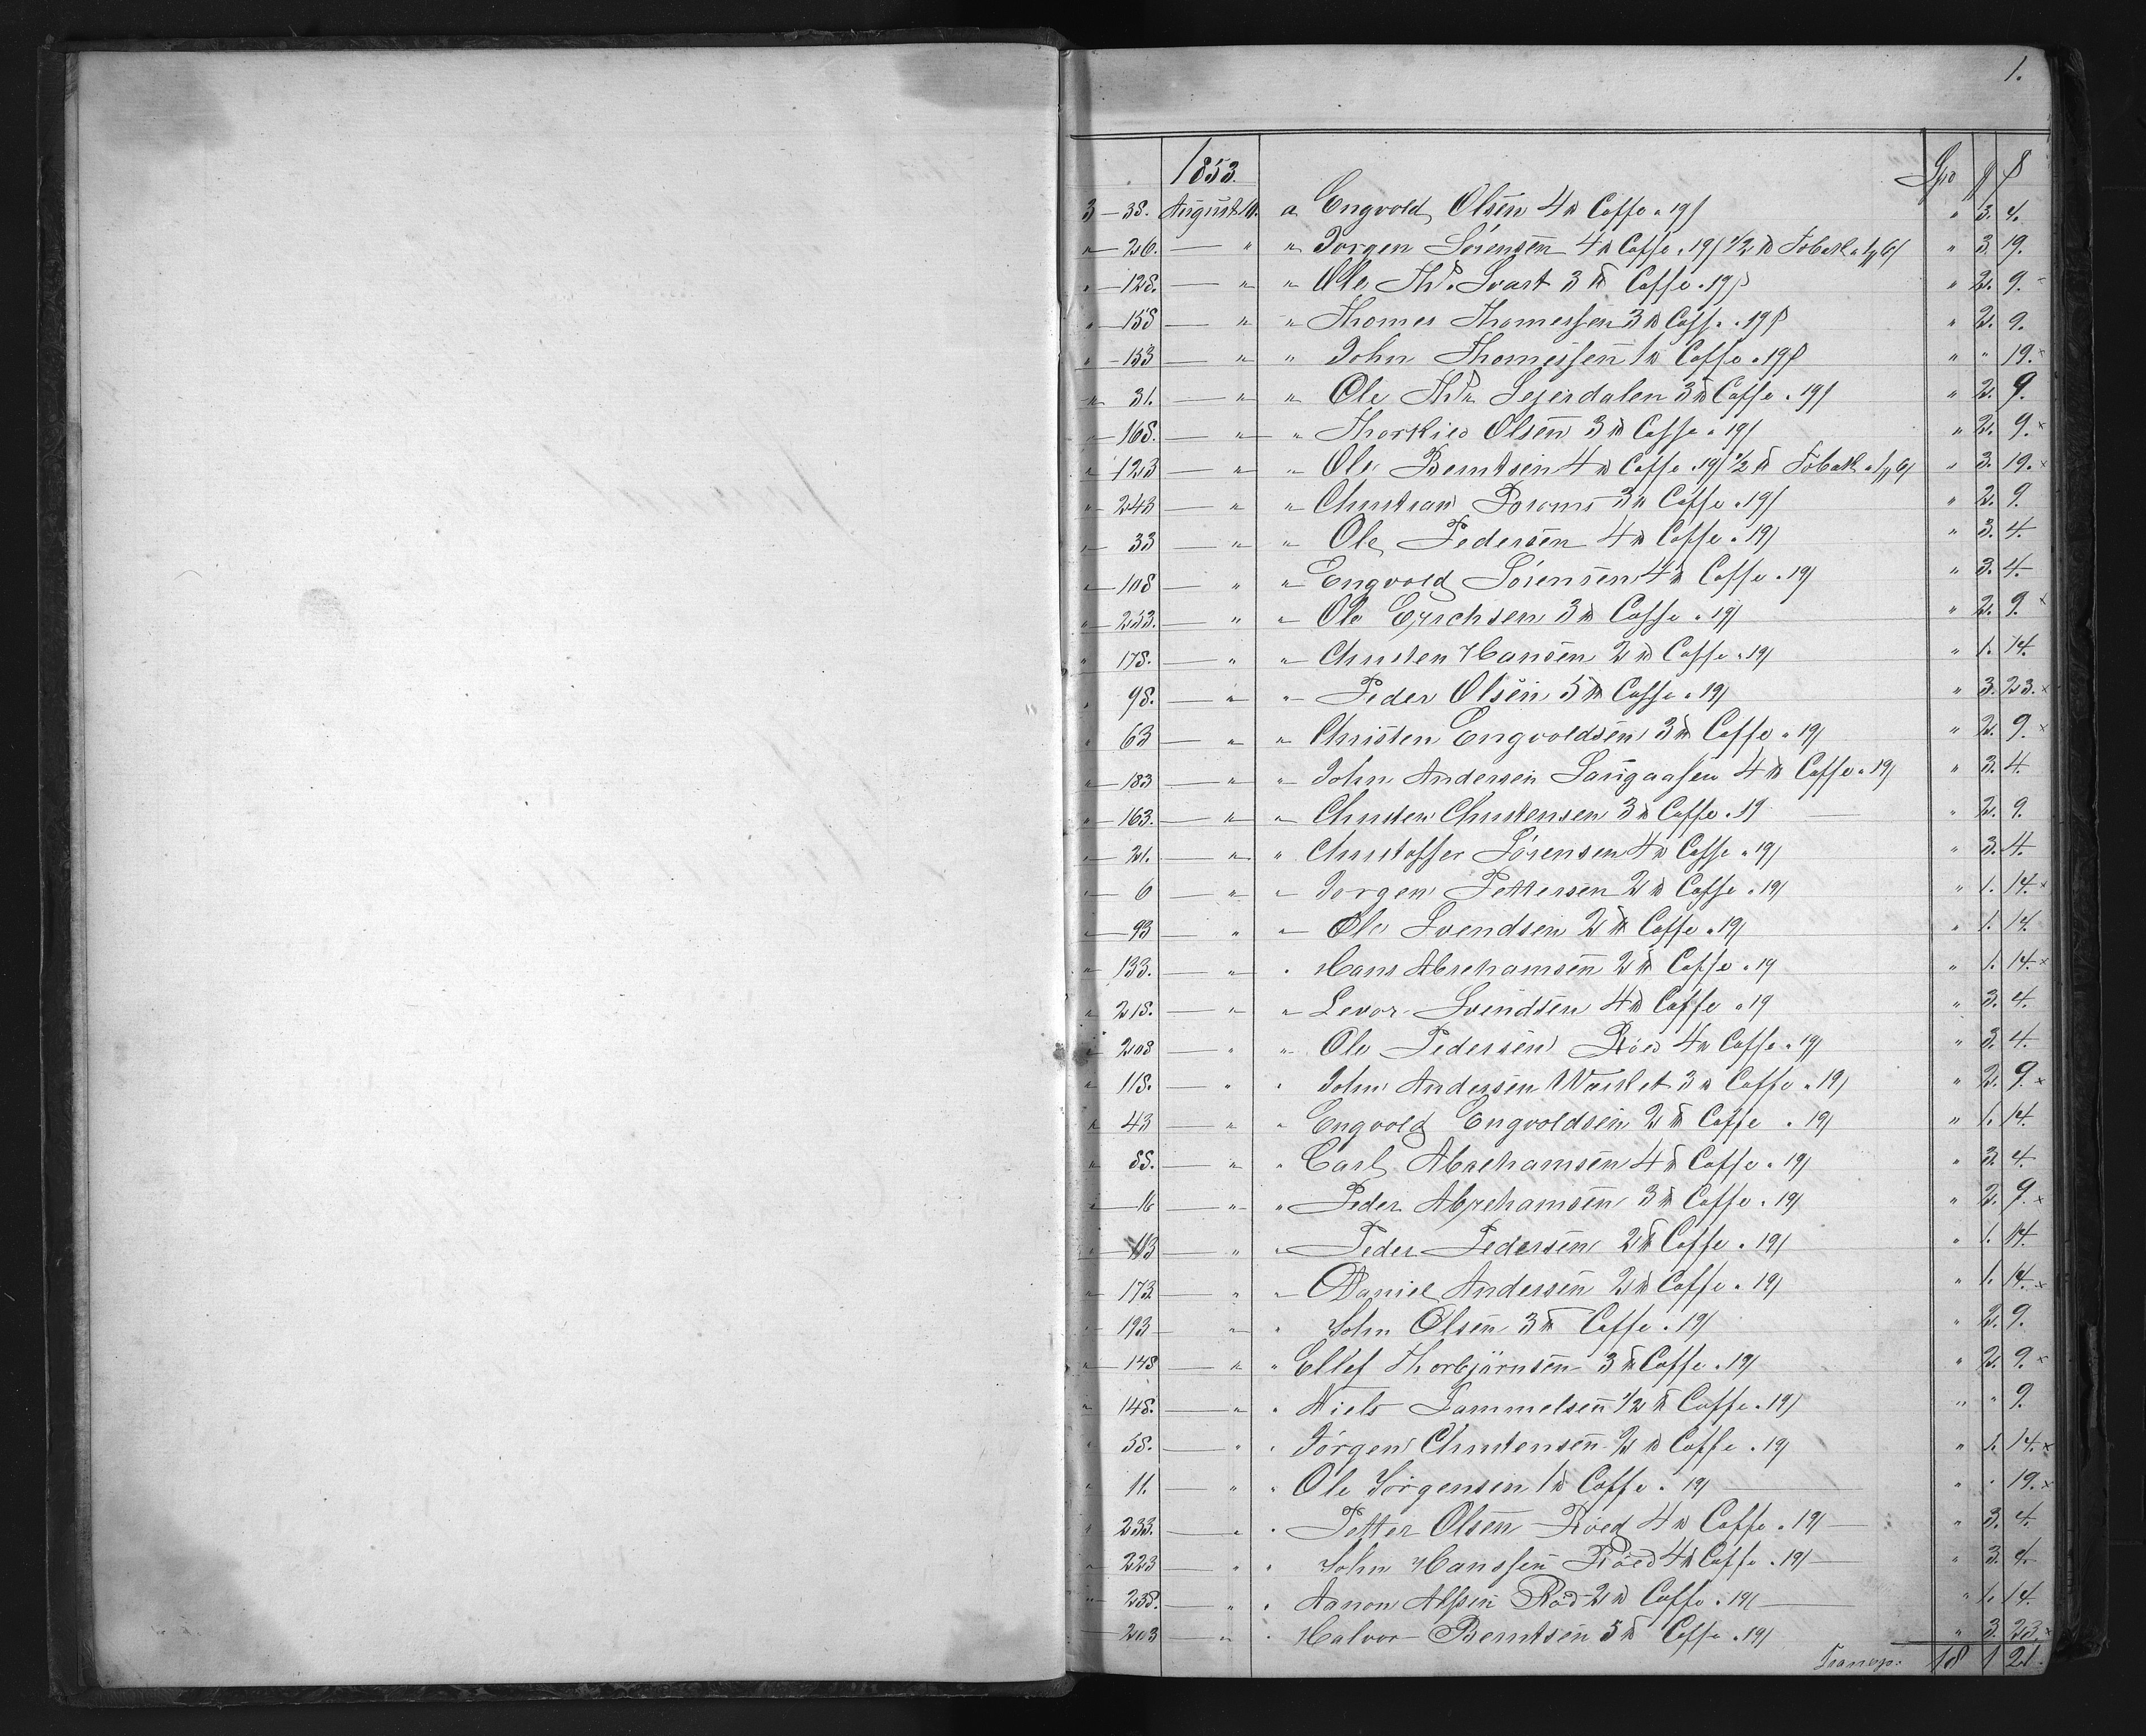 1.
1853. Spd
3 - 38. August 10. a Engvold Olsen 4 ℔ Caffe a 19/ " 3. 4.
" - 26. — " " Jorgen Sörensen 4 ℔ Caffe a 19/ 1/2 ℔ Tobak a " 3. 19.
" - 128. — " " Ole Svart 3 ℔ Caffe a 19/ " 2. 9.
" - 158 — " " Thomes Thomessen 3 ℔ Caffe a 19/ " 2. 9.
" - 153 — " " John Thomessen 1 ℔ Caffe a 19/ " " 19. ×
" 31. — " " Ole Lejerdalen 3 ℔ Caffe a 19/ " 2. 9.
" 168. — " " Thorkild Olsen 3 ℔ Caffe a 19/ " 2. 9. ×
" 123 — " " Ole Berntsen 4 ℔ Caffe a 19/ 1/2 ℔ Tobak a " 3. 19. ×
" 243 — " " Christian 3 ℔ Caffe a 19/ " 2. 9.
" 33 — " " Ole Pedersen 4 ℔ Caffe a 19/ " 3. 4.
" 108 — " " Engvold Sörensen 4 ℔ Caffe a 19/ " 3. 4.
" 253. — " " Ole Erichsen 3 ℔ Caffe a 19/ " 2. 9. ×
" 178. — " " Christen Hansen 2 ℔ Caffe a 19/ " 1. 14.
" 98. — " " Peder Olsen 5 ℔ Caffe a 19/ " 3. 23. ×
" 63 — " " Christen Engvoldsen 3 ℔ Caffe a 19/ " 2. 9. ×
" 183 — " " John Andersen Langaasen 4 ℔ Caffe a 19/ " 3. 4.
" 163. — " " Christen Christensen 3 ℔ Caffe a 19 " 2. 9.
" 21. — " " Christoffer Sörensen 4 ℔ Caffe a 19/ " 3. 4.
" 6 — " " Jorgen Pettersen 2 ℔ Caffe a 19/ " 1. 14. ×
" 93 — " " Ole Svendsen 2 ℔ Caffe a 19/ " 1. 14.
" 133. — " " Hans Abrehamsen 2 ℔ Caffe a 19 " 1. 14. ×
" 218. — " " Levor Svendsen 4 ℔ Caffe a 19 " 3. 4.
" 208 — " " Ole Pedersen Röed 4 ℔ Caffe a 19/ " 3. 4.
" 118. — " " John Andersen 3 ℔ Caffe a 19/ " 2. 9. ×
" 43 — " " Engvold Engvoldsen 2 ℔ Caffe a 19/ " 1. 14.
" 88. — " " Carl Abrehamsen 4 ℔ Caffe a 19/ " 3. 4.
" 16 — " " Peder Abrehamsen 3 ℔ Caffe a 19/ " 2. 9. ×
" 113 — " " Peder Pedersen 2 ℔ Caffe a 19/ " 1. 14.
" 173 — " " Daniel Andersen 2 ℔ Caffe a 19/ " 1. 14. ×
" 193 — " " John Olsen 3 ℔ Caffe a 19/ " 2. 9.
" 143 — " " Ellef Thorbjörnsen 3 ℔ Caffe a 19/ " 2. 9. ×
" 148. — " " Niels Sammelsen 1/2 ℔ Caffe a 19/ " " 9.
" 58. — " " Jörgen Christensen 2 ℔ Caffe a 19/ " 1. 14. ×
" 11. — " " Ole Jörgensen 1 ℔ Caffe a 19/ " " 19. ×
" 233. — " " Petter Olsen Röed 4 ℔ Caffe a 19/ " 3. 4.
" 223 — " " John Hanssen Röed 4 ℔ Caffe a 19/ " 3. 4.
" 238. — " " Aanon Röd 2 ℔ Caffe a 19/ " 1. 14.
" 203 — " " Halvor Berntsen 5 ℔ Caffe a 19/ " 3. 23. ×
Transp: 18 1 21.